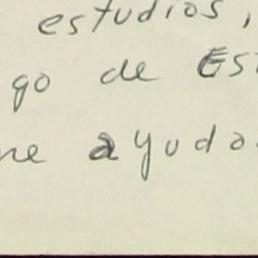 estudios,
go de Es
me ayuda